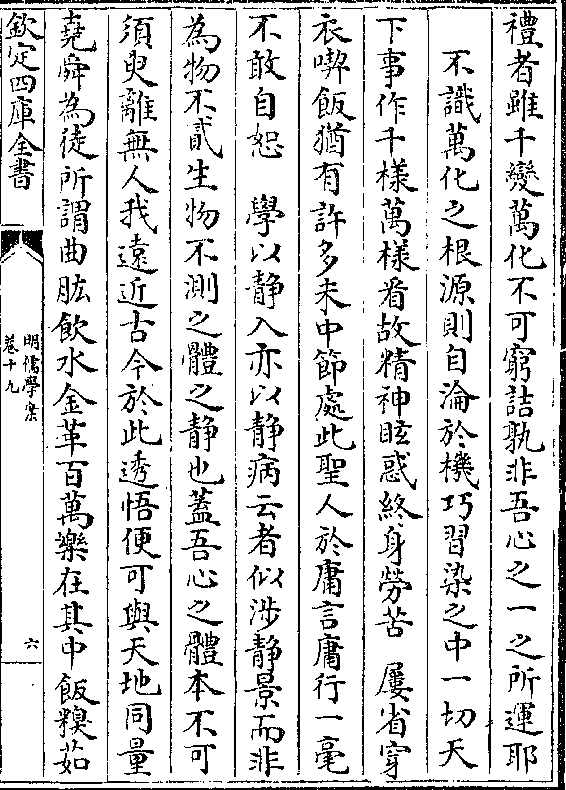 禮者雖千變萬化不可窮詰孰非吾心之一之所運耶
不識萬化之根源則自淪於機巧習染之中一切天
下事作千様萬様看故精神眩惑終身勞苦　屢省穿
衣喫飯猶有許多未中節處此聖人於庸言庸行一毫
不敢自恕　學以静入亦以静病云者似涉静景而非
為物不貳生物不測之體之静也蓋吾心之體本不可
須臾離無人我逺近古今於此透悟便可與天地同量
堯舜為徒所謂曲肱飲水金革百萬樂在其中飯糗茹
欽定四庫全書
明儒學案
卷十九
六